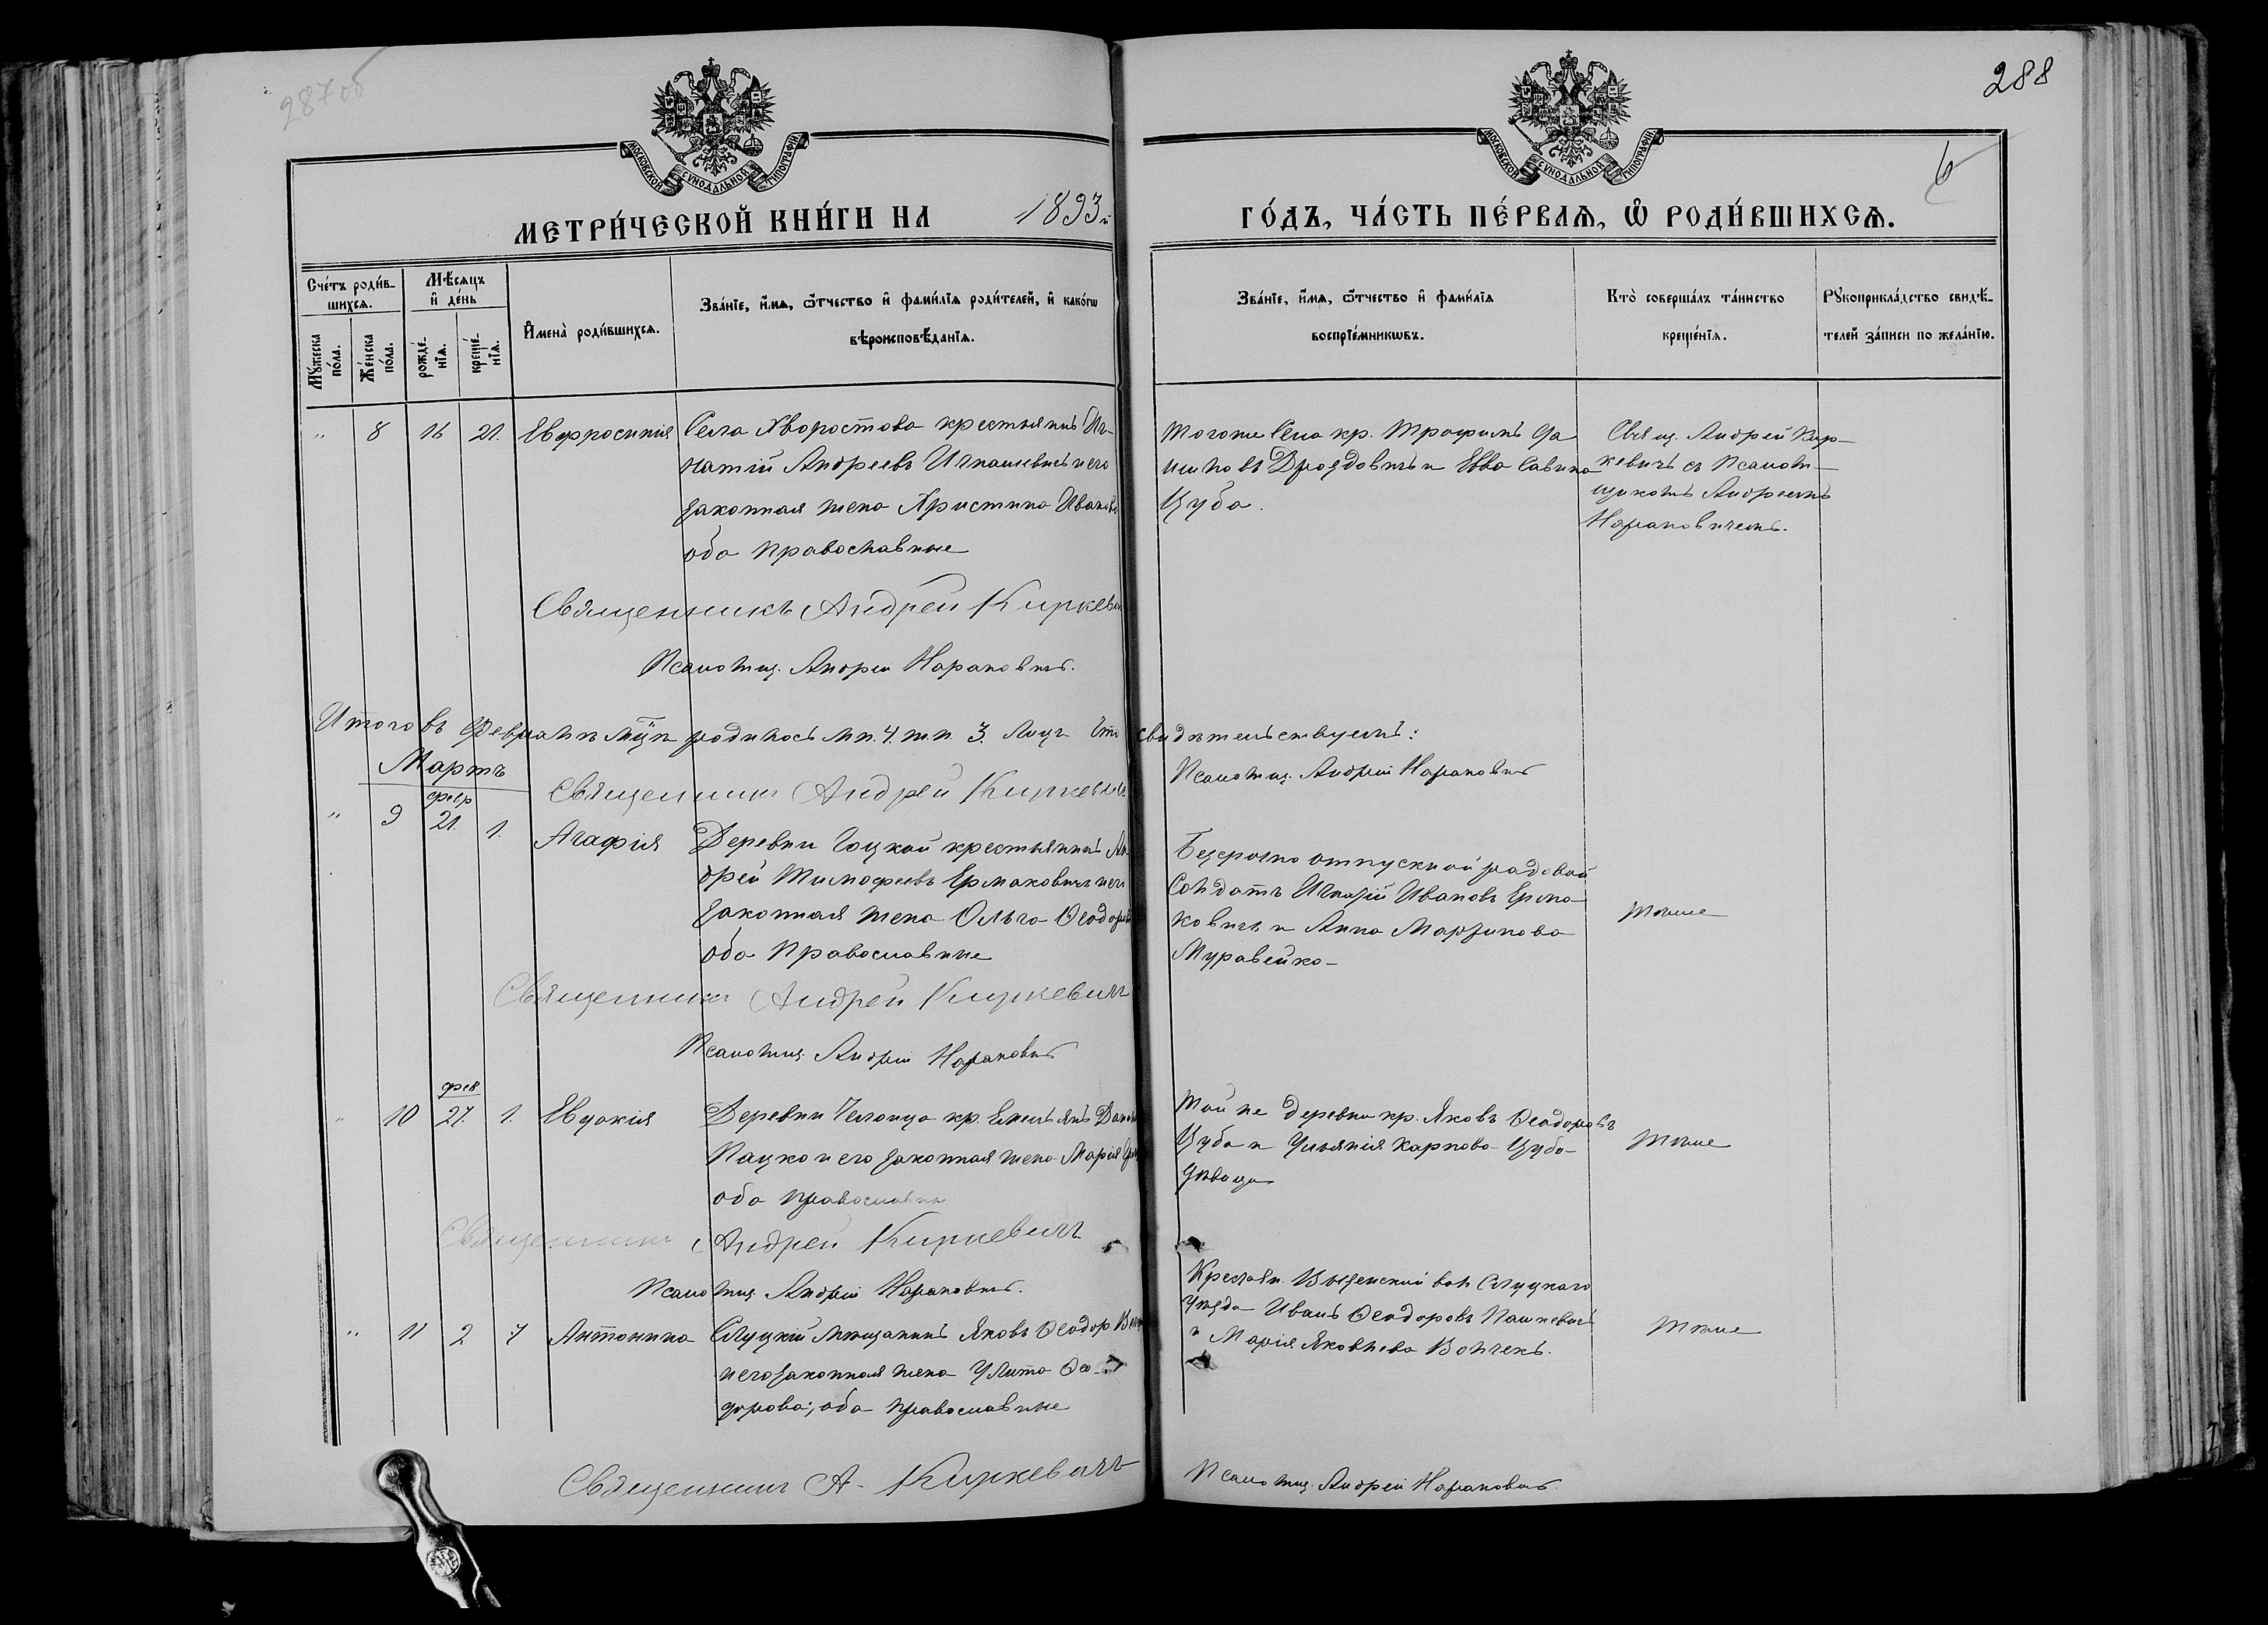 287об
288
6
МОСКОВСКОЙ СѴНОДАЛЬНОЙ ТИПОГРАФІИ
МОСКОВСКОЙ СѴНОДАЛЬНОЙ ТИПОГРАФІИ
МЕТРИ́ЧЕСКОЙ КНИ́ГИ НА 1893й ГО́ДЪ, ЧА́СТЬ ПЕ́РВАѦ, Ѡ҆ РОДИ́ВШИХСѦ.
Сче́тъ роди́в-
шихсѧ.
Мꙋ́жеска по́ла.
Же́нска по́ла.
Мѣ́сѧцъ и҆ де́нь
рожде́-нїѧ.
креще́-нїѧ.
И҆мена̀ роди́вшихсѧ.
Зва́нїе, и҆́мѧ, ѻ҆́тчество и҆ фами́лїѧ роди́телей, и҆ како́гѡ
вѣроисповѣ́данїѧ.
Зва́нїе, и҆́мѧ, ѻ҆́тчество и҆ фами́лїѧ
воспрїе́мникѡвъ.
Кто̀ соверша́лъ та́инство
креще́нїѧ.
Рꙋкоприкла́дство свидѣ́-
телей за́писи по жела́нїю.
" 8 16 21. Евфросинія
Села Хворостова крестьянинъ Иг-
натій Андреевъ Игнашевичъ и его
законная жена Христина Иванова
оба православные
Тогоже Села кр. Трофимъ
Дроздовичъ и Евва Савина
Цуба.
Свящ. Андрей Кир-
кевичъ съ Псалом-
щикомъ Андреемъ
Нарановичемъ.
Священникъ Андрей Киркевичъ
Псаломщ. Андрей Нарановичъ.
Итого въ Февралѣ мцѣ родилось м.п. 4. ж.п. 3. Что свидѣтельствуемъ:
Священникъ Андрей Киркевичъ
Псаломщ. Андрей Нарановичъ
Мартъ
" 9 февр 21. 1. Агафія
Деревни Гоцкой крестьянинъ Ан-
дрей Тимофеевъ Ермаковичъ и его
законная жена Ольга Ѳеодорова
оба Православные
Безсрочно отпускной рядовой
Солдатъ Игнатій Ивановъ Ерма
ковичъ и Анна Мартинова
Муравейко-
тоже
Священникъ Андрей Киркевичъ
Псаломщ. Андрей Нарановичъ
" 10 фев 27. 1. Евдокія
Деревни Челонца кр.
Пацко и его законная жена Марія
оба православны
Той же деревни кр. Яковъ Ѳеодоровъ
Цуба и Ульянія Карпова Цуба
дѣвица
тоже
Священникъ Андрей Киркевичъ
Псаломщ Андрей Нарановичъ.
" 11 2 7 Антонина
Слуцкій мѣщанинъ Яковъ Ѳеодор.
и его законная жена Улита Ѳео-
дорова; оба православные
Крестьян. Вызенской вол Слуцкаго
уѣзда Иванъ Ѳеодоровъ Пашкевичъ
и Марія Яковлева Волчекъ.
тоже
Священникъ А. Киркевичъ
Псаломщ. Андрей Нарановичъ